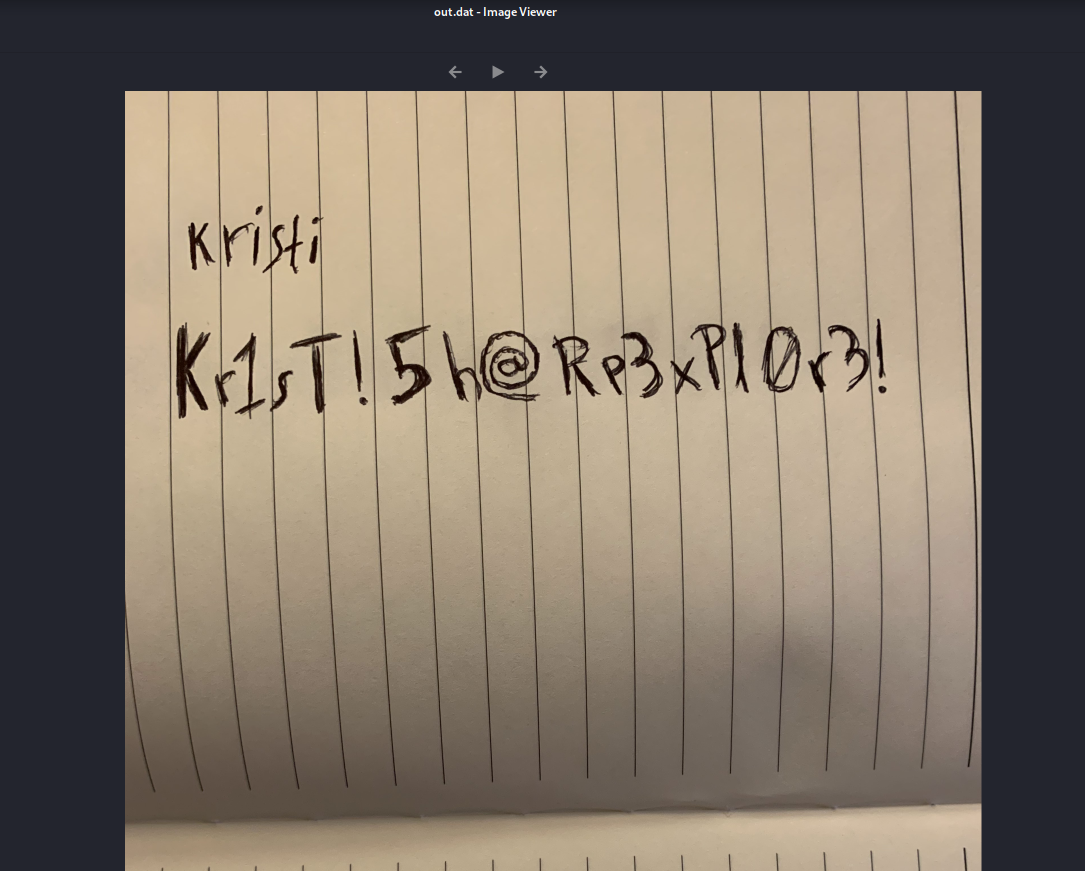 out.dat - Image Viewer
kristi
Kr1sT!5h@Rp3xPl0r3!